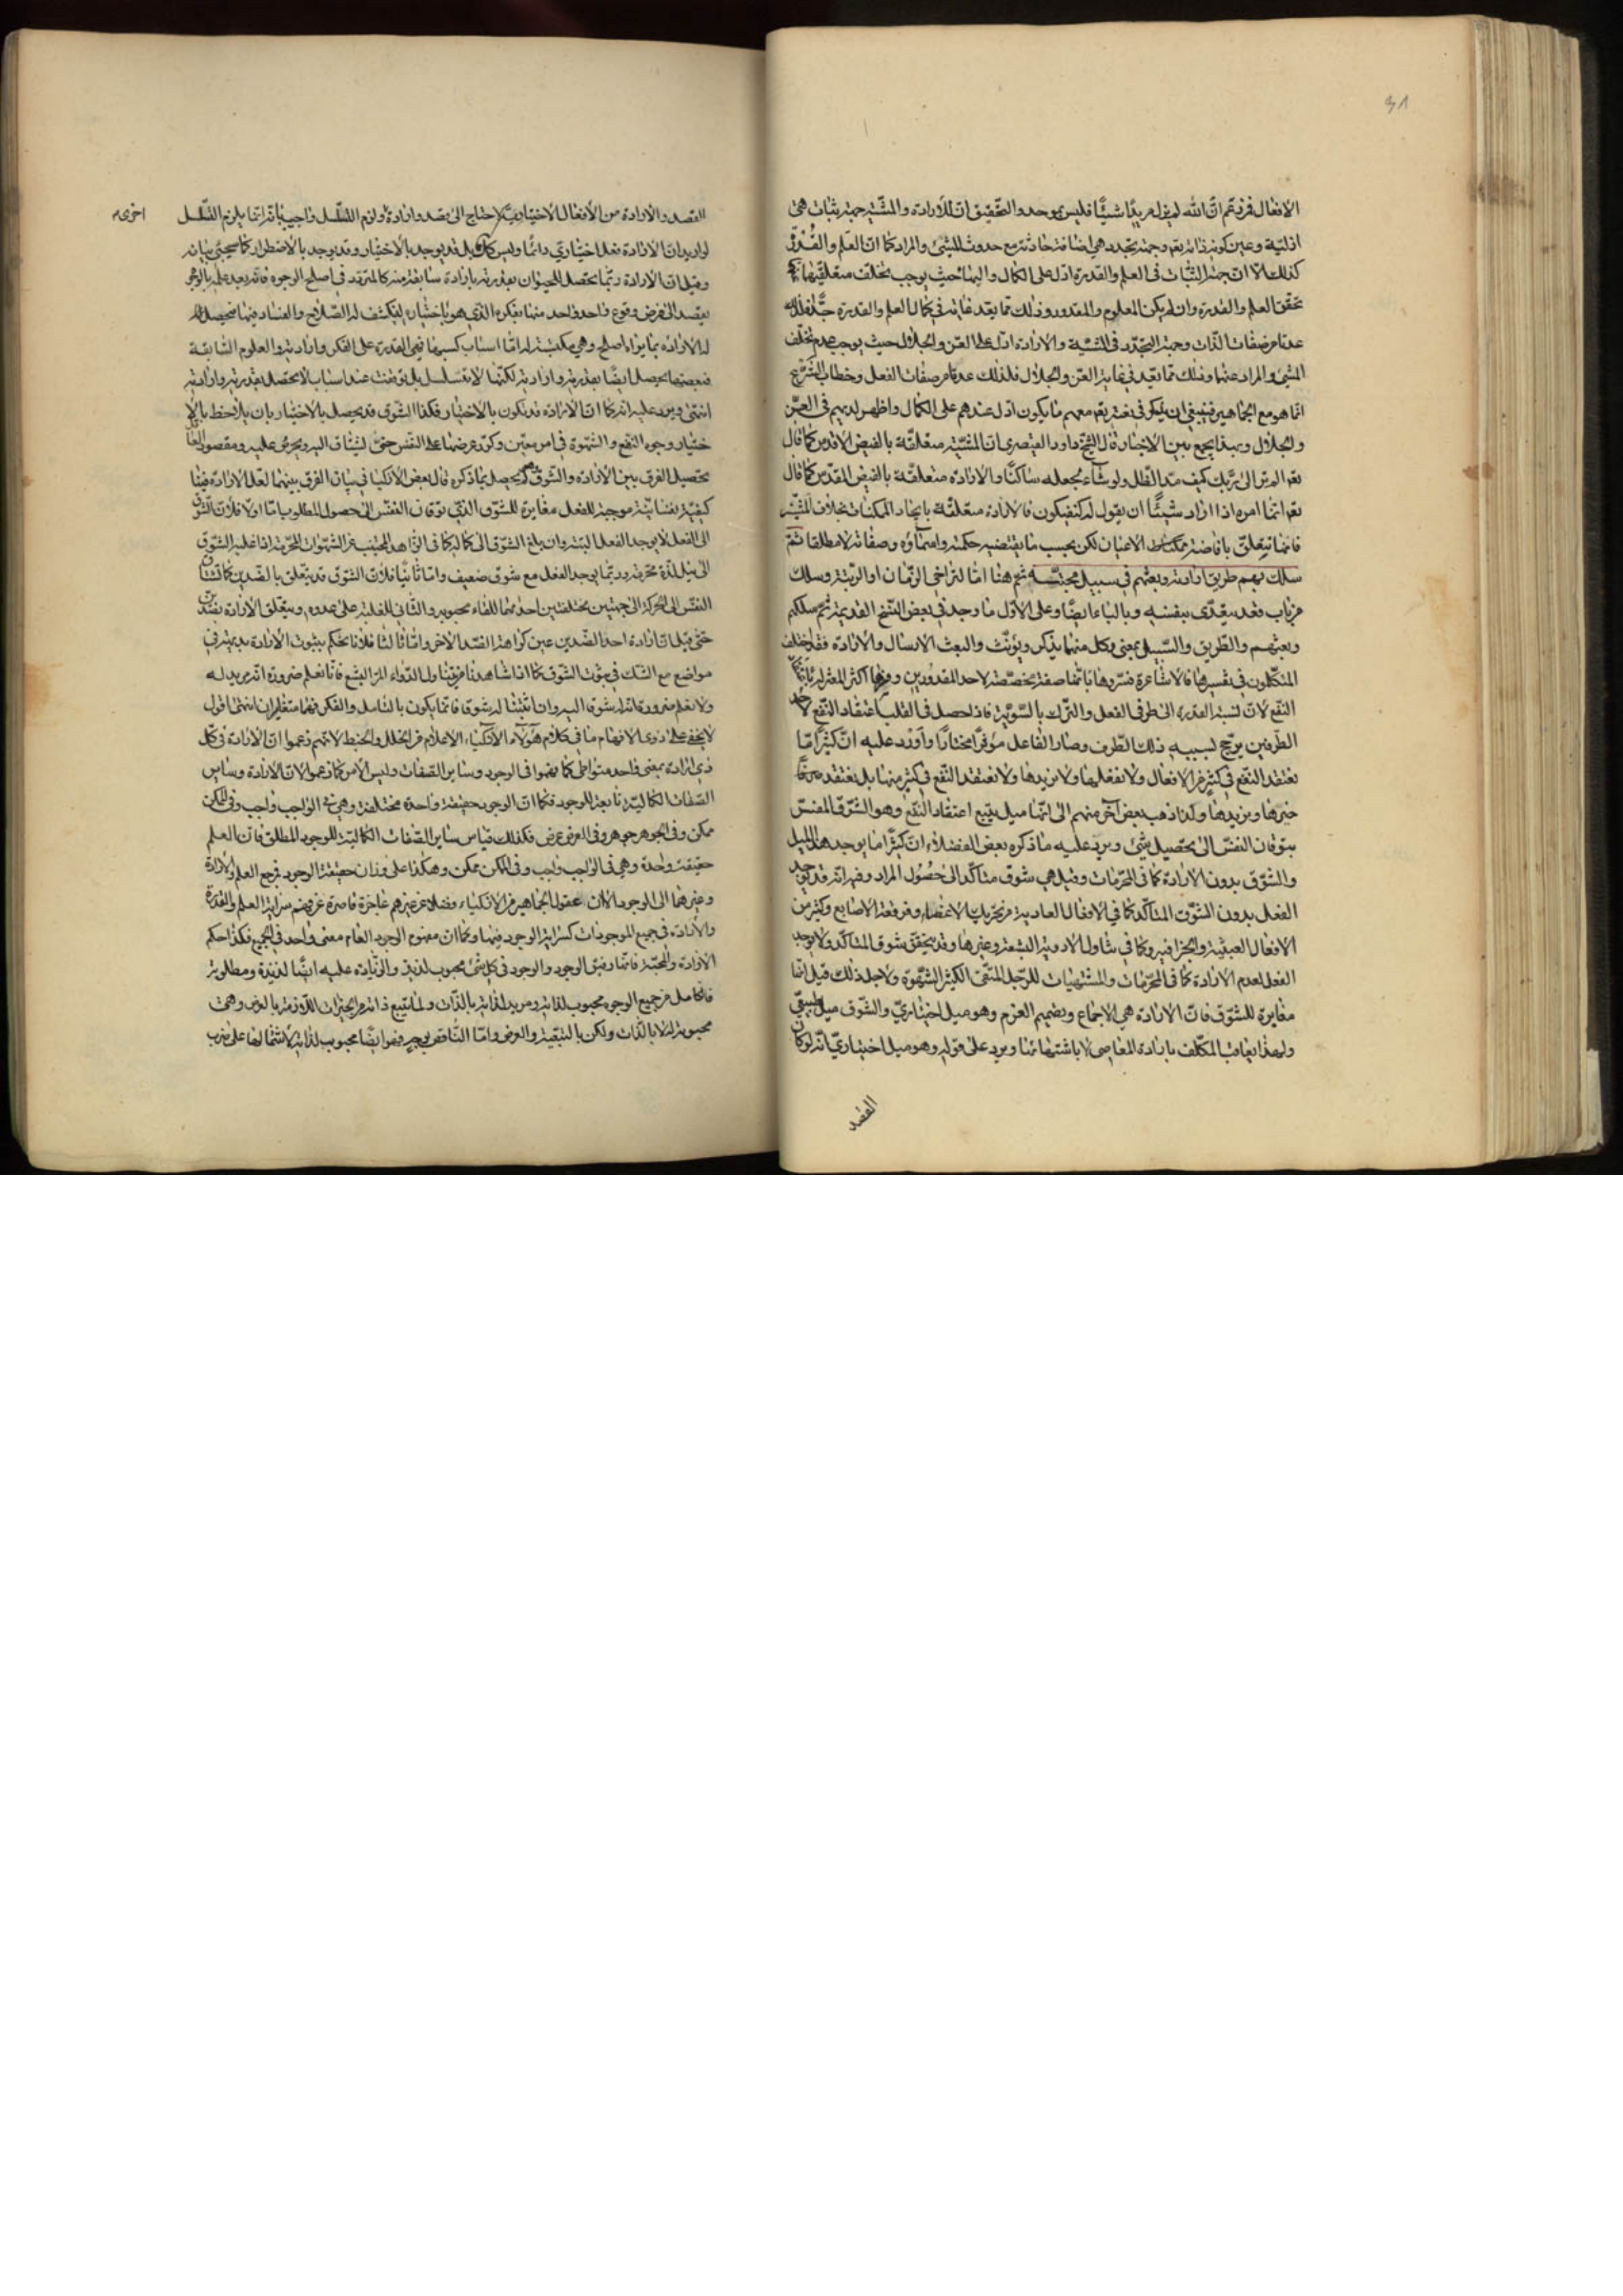 ٣١
الافعال فمن زعم ان الله لم يزل مريدا شيئا فليس بموحد والتحقيق ان للارادة والمشية جهة ثبات هي
ازلية وعين كونه ذاته تعالى وجهة تجدد هي اضافة حادثة مع حدوث الشيء والمراد كما ان العلم والقدرة
كذلك الا ان جهة الثبات في العلم والقدرة ادل على الكمال والبهاء حيث يوجب تخلف متعلقيهما
تحقق العلم والقدرة وان لم يكن المعلوم والمقدور وذلك مما يعد غاية في كمال العلم والقدرة فلذلك
عدتا من صفات الذات وجهة التجدد في المشية والارادة ادل على العز والجلال حيث يوجب عدم تخلف
الشيء والمراد عنهما وذلك مما يعد في غاية العز والجلال فلذلك عدتا من صفات الفعل وخطاب الشرع
انما هو مع الجماهير فينبغي ان يذكر في نعته تعالى معهم ما يكون ادل عندهم على الكمال واظهر لديهم في العز
والجلال وبهذا يجمع بين الاخبار قال الشيخ داود القيصري ان المشية متعلقة بالفيض الاقدس كما قال
تعالى الم تر الى ربك كيف مد الظل ولو شاء لجعله ساكنا والارادة متعلقة بالفيض المقدس كما قال
تعالى انما امره اذا اراد شيئا ان يقول له كن فيكون فالارادة متعلقة بايجاد الممكنات بخلاف المشية
فانها تتعلق بافاضة الاعيان لكن بحسب ما يقتضيه حكمته واسماؤه وصفاته لا مطلقا ثم
سلك بهم طريق ارادته وبعثهم في سبيل محبته ثم هنا اما للتراخي الزمان او الرتبة وسلك
من باب قعد يتعدى بنفسه وبالباء ايضا وعلى الاول ما وجد في بعض النسخ القديمة ثم سلكهم
وبعثهم والطريق والسبيل بمعنى وكل منهما يذكر ويؤنث والبعث الارسال والارادة فقد اختلف
المتكلمون في تفسيرها فالاشاعرة فسروها بانها صفة مخصصة لاحد المقدورين وفسرها اكثر المعتزلة باعتقاد
النفع لان نسبة القدرة الى طرفي الفعل والترك بالسوية فاذا حصل في القلب اعتقاد النفع لاحد
الطرفين يرجح بسببه ذلك الطرف وصار الفاعل مؤثرا مختارا واورد عليه ان كثيرا ما
نعتقد النفع في كثير من الافعال ولا نفعلها ولا نريدها ولا نعتقد النفع في كثير منها بل نعتقد
ضرها ونريدها ولذا ذهب بعض اخر منهم الى انها ميل يتبع اعتقاد النفع وهو الشوق المفسر
بتوقان النفس الى تحصيل شيء ويرد عليه ما ذكره بعض الفضلاء ان كثيرا ما يوجد هذا الميل
والشوق بدون الارادة كما في المحرمات وقيل هي شوق متأكد الى حصول المراد وفيه انه قد يوجد
الفعل بدون الشوق المتأكد كما في الافعال العادية من تحريك الاعضاء وفرقعة الاصابع وكثير من
الافعال العبثية والجزافية وكما في تناول الادوية البشعة وغيرها وقد يتحقق شوق المتأكد ولا يوجد
الفعل لعدم الارادة كما في المحرمات والمشتهيات للرجل المتقي الكثير الشهوة ولاجل ذلك قيل انها
مغايرة للشوق فان الارادة هي الاجماع وتصميم العزم وهو ميل اختياري والشوق ميل طبيعي
ولهذا يعاقب المكلف بارادة المعاصي لا باشتهائها ويرد على قوله وهو ميل اختياري انه لو كان
القصد
القصد والارادة من الافعال الاختيارية لاحتاج الى قصد وارادة ولزم التسلسل واجيب بانه انما يلزم التسلسل
اخرى
لو اريد ان الارادة فعل اختياري دائما وليس كذلك بل قد يوجد بالاختيار وقد يوجد بالاضطرار كما سيجيئ بيانه
وقيل ان الارادة ربما تحصل للحيوان بقدرته بارادة سابقة منه كالمتردد في اصلح الوجوه فانه بعد علمه بالوجوه
يقصد الى فرض وقوع واحد واحد منها بفكره الذي هو باختياره لينكشف له الصلاح والفساد فيها فيحصل
له الارادة بما يراه اصلح وهي مكتسبة له اما اسباب كسبها فهي القدرة على الفكر وارادته والعلوم السابقة
فبعضها يحصل ايضا بقدرته وارادته لكنها لا تتسلسل بل توقفت عند اسباب لا تحصل بقدرته وارادته
انتهى ويرد عليه انه كما ان الارادة قد تكون بالاختيار فكذا الشوق قد يحصل بالاختيار بان يلاحظ بالا
ختيار وجوه النفع والشهوة في امر معين وكرر عرضها على النفس حتى تشتاق اليه وتحرص عليه ومقصود القائل
تحصيل الفرق بين الارادة والشوق ولم يحصل بما ذكره قال بعض الاذكيا في بيان الفرق بينهما لعل الارادة فينا
كيفية نفسانية موجبة للفعل مغايرة للشوق الذي توقان النفس الى حصول المطلوب اما اولا فلان الشوق
الى الفعل لا يوجد الفعل البتة وان بلغ الشوق الى كماله كما في الزاهد المجتنب عن الشهوات المحرمة اذا غلبه الشوق
الى نيل لذة محرمة وربما يوجد الفعل مع شوق ضعيف واما ثانيا فلان الشوق قد يتعلق بالضدين كما تشتاق
النفس الى الحركة الى جهتين مختلفتين احديهما للقاء محبوبه والثاني للغلبة على عدوه ويتعلق الارادة بضدين
حتى قيل ان ارادة احد الضدين عين كراهة الضد الاخر واما ثالثا فلانا نحكم بثبوت الارادة بديهة في
مواضع مع الشك في ثبوت الشوق كما اذا شاهدنا مريضا تناول الدواء المر البشع فانا نعلم ضرورة انه يريد له
ولا نعلم ضرورة ان له شوقا اليه وان اثبتنا له شوقا فانما يكون بالتامل والفكر فهما متغايران انتهى اقول
لا يخفى على ذوي الافهام ما في كلام هؤلاء الاذكياء الاعلام من الخلل والخبط لانهم زعموا ان الارادة في كل
ذي ارادة بمعنى واحد متواطئ كما فهموا في الوجود وساير الصفات وليس الامر كما زعموا لان الارادة وساير
الصفات الكمالية تابعة للوجود فكما ان الوجود حقيقة واحدة مختلفة وهي في الواجب واجب وفي الممكن
ممكن وفي الجوهر جوهر وفي العرض عرض فكذلك قياس ساير الصفات الكمالية للوجود المطلق فان العلم
حقيقة واحدة وهي في الواجب واجب وفي الممكن ممكن وهكذا على وزان حقيقة الوجود فرجع العلم والارادة
وغيرهما الى الوجود الا ان عقول الجماهير من الاذكياء فضلا عن غيرهم عاجزة قاصرة عن فهم سراية العلم والقدرة
والارادة في جميع الموجودات كسراية الوجود فيها وكما ان مفهوم الوجود العام معنى واحد في الجميع فكذا حكم
الارادة والمحبة فانها رفيق الوجود والوجود في كل شيء محبوب لذيذ والزيادة عليه ايضا لذيذة ومطلوبة
فالكامل من جميع الوجوه محبوب لذاته ومريد لذاته بالذات ولما يتبع ذاته من الخيرات اللازمة بالعرض وهي
محبوبة له لا بالذات ولكن بالتبعية والعرض واما الناقص بوجه فهو ايضا محبوب لذاته لاشتمالها على ضرب